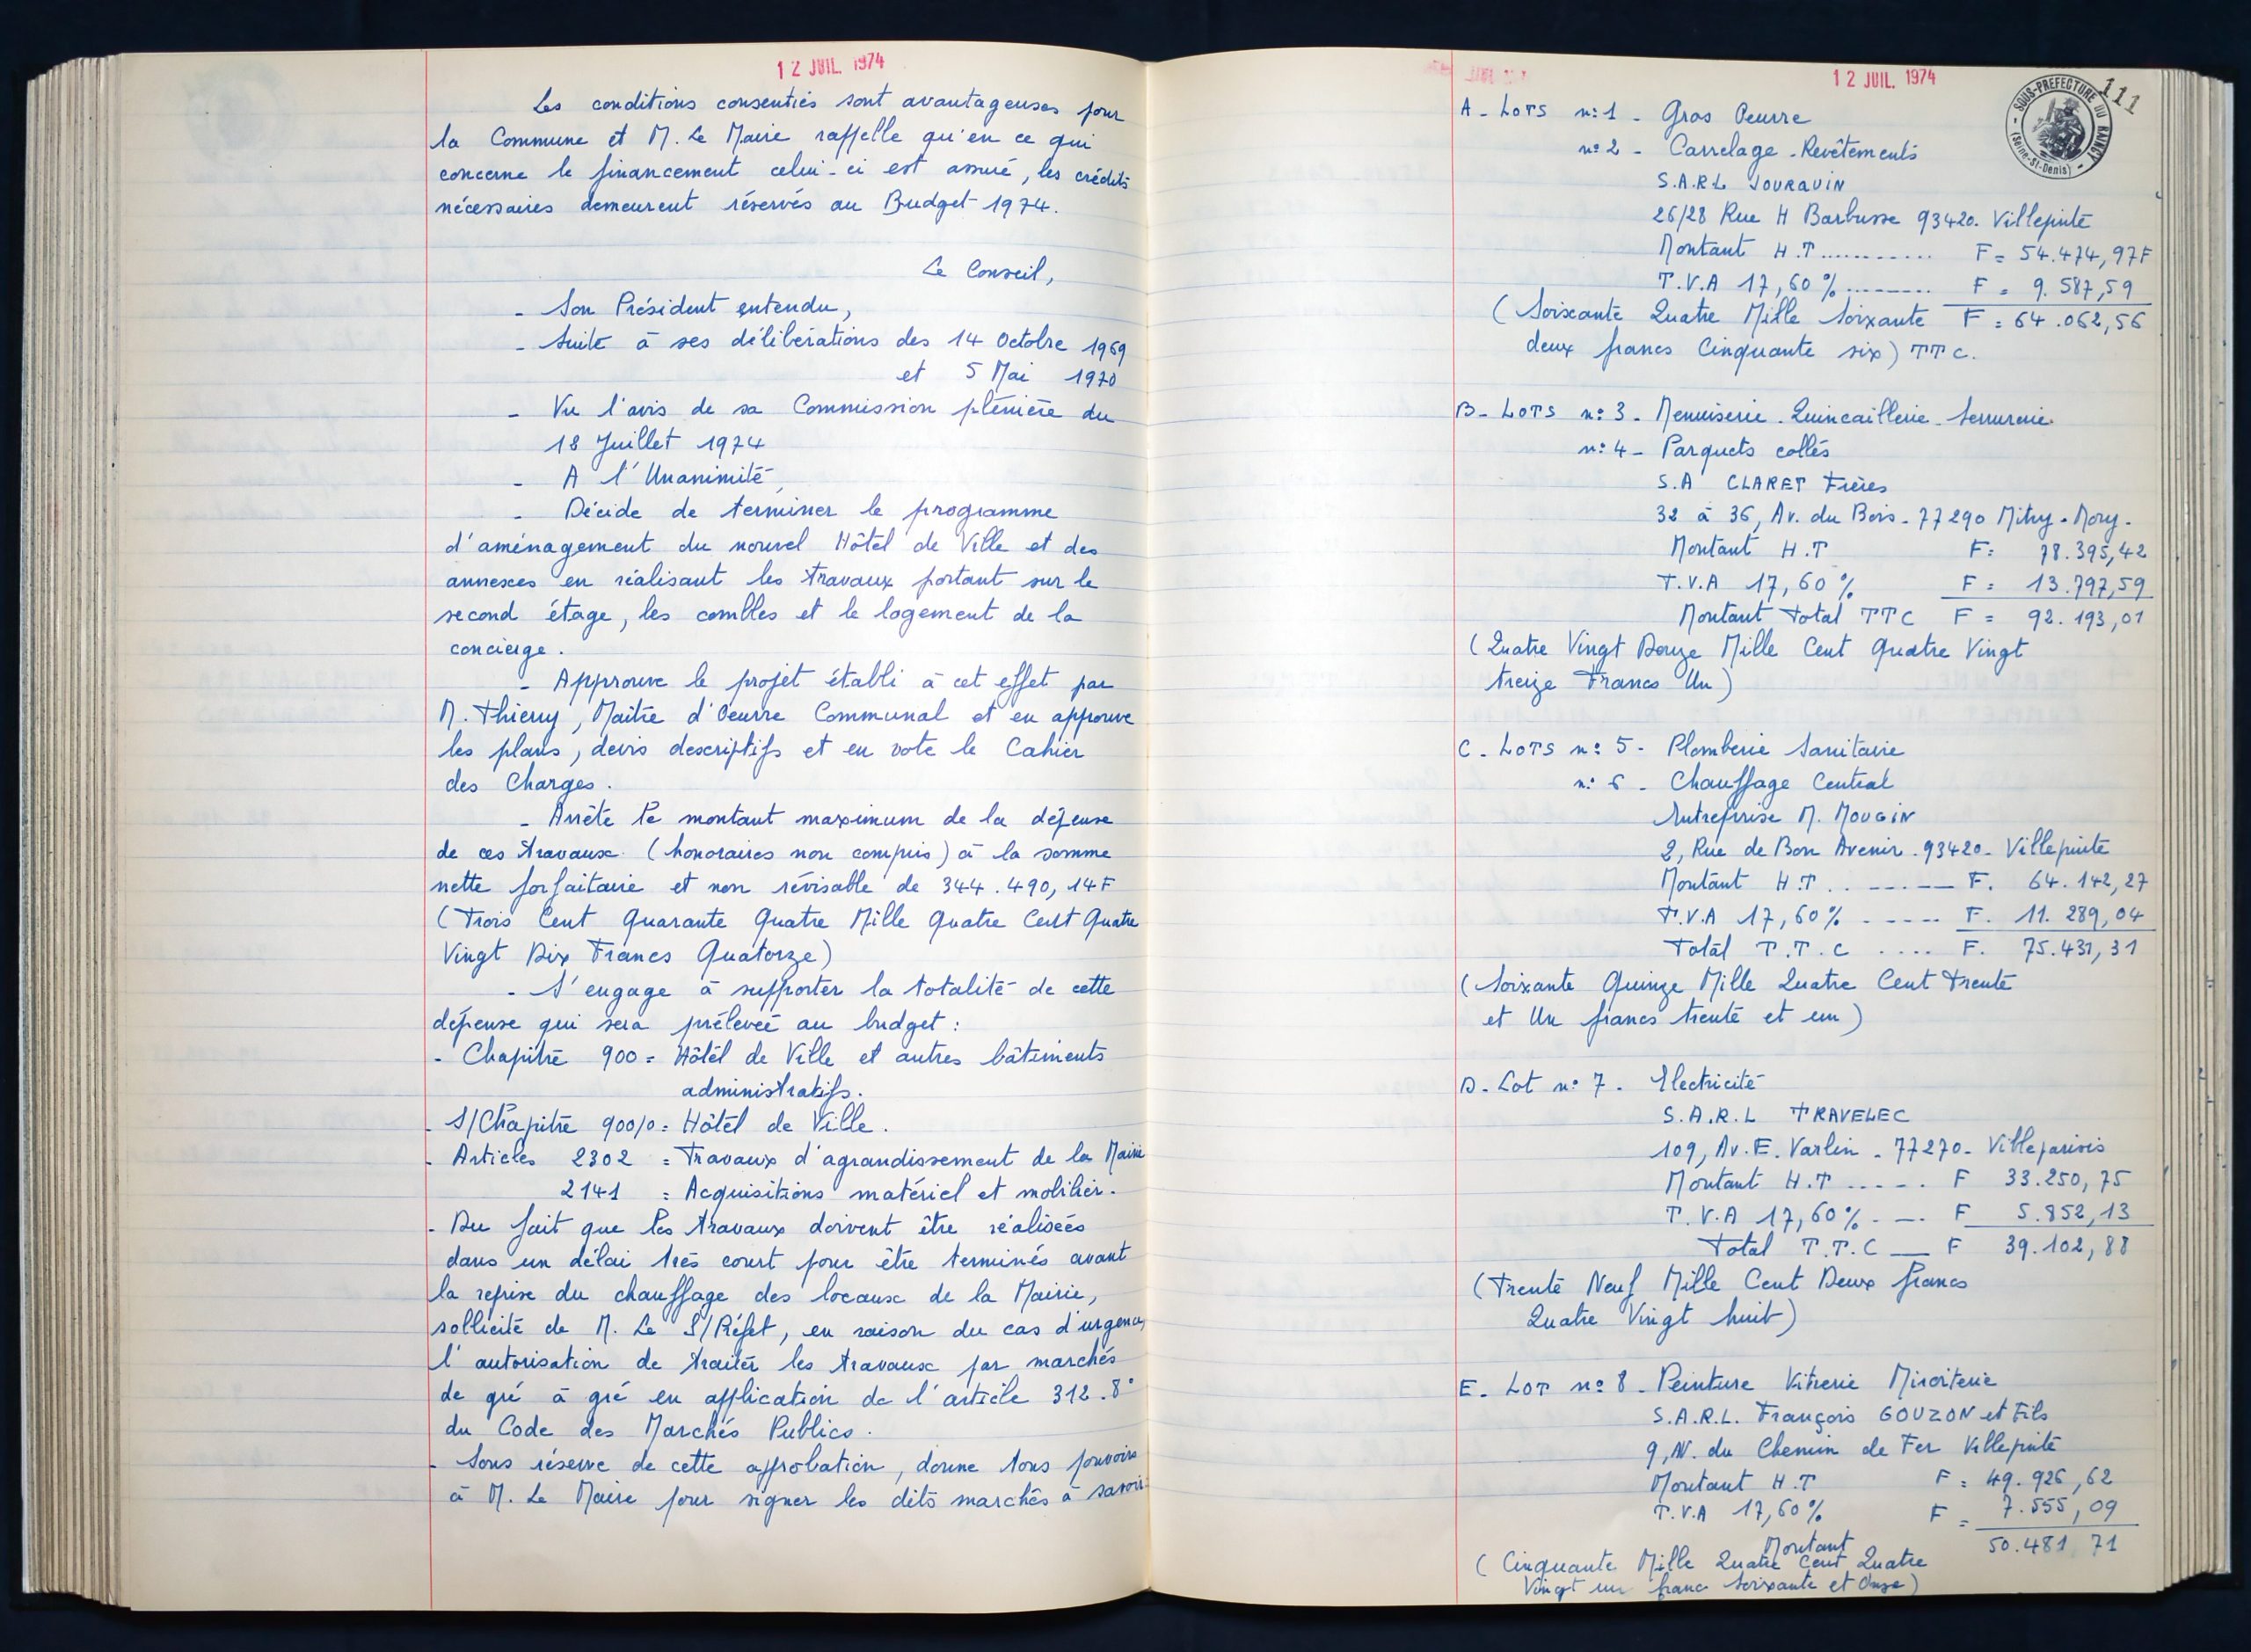 12 JUIL. 1974
Les conditions consenties sont avantageuses pour
la Commune et M. Le Maire rappelle qu'en ce qui
concerne le financement celui-ci est assuré, les crédits
nécessaires demeurent réservés au Budget 1974.
Le Conseil,
- Son Président entendu,
- Suite à ses délibérations des 14 Octobre 1969
et 5 Mai 1970
- Vu l'avis de sa Commission plénière du
18 Juillet 1974
- A l'Unanimité,
- Décide de terminer le programme
d'aménagement du nouvel Hôtel de Ville et des
annexes en réalisant les travaux portant sur le
second étage, les combles et le logement de la
concierge.
- Approuve le projet établi à cet effet par
M. Thierry, Maître d'Oeuvre Communal et en approuve
les plans, devis descriptifs et en vote le Cahier
des Charges.
- Arrête le montant maximum de la dépense
de ces travaux (honoraires non compris) à la somme
nette forfaitaire et non révisable de 344.490,14F
(Trois Cent Quarante Quatre Mille Quatre Cent Quatre
Vingt Dix Francs Quatorze)
- S'engage à supporter la totalité de cette
dépense qui sera prélevée au budget :
- Chapitre 900 = Hôtel de Ville et autres bâtiments
administratifs.
- S/Chapitre 900/0 = Hôtel de Ville.
- Articles 2302 = Travaux d'agrandissement de la Mairie
2141 = Acquisitions matériel et mobilier.
- Du fait que les travaux doivent être réalisées
dans un délai très court pour être terminés avant
la reprise du chauffage des locaux de la Mairie,
sollicite de M. Le S/Préfet, en raison du cas d'urgence,
l'autorisation de traiter les travaux par marchés
de gré à gré en application de l'article 312.8°
du Code des Marchés Publics.
- Sous réserve de cette approbation, donne tous pouvoirs
à M. Le Maire pour signer les dits marchés à savoir:
12 JUIL. 1974
111
SOUS-PREFECTURE DU RAINCY
(Seine-St-Denis)
A - LOTS n:1 - Gros Oeuvre
n:2 - Carrelage - Revêtements
S.A.R.L JOURAVIN
26/28 Rue H Barbusse 93420. Villepinte
Montant H.T ........... F = 54.474,97F
T.V.A 17,60% ......... F = 9.587,59
(Soixante Quatre Mille Soixante F = 64.062,56
deux francs Cinquante six) TTC.
B - LOTS n: 3 - Menuiserie - Quincaillerie - Serrurerie.
n: 4 - Parquets collés
S.A CLARET Frères
32 à 36, Av. du Bois - 77290 Mitry-Mory.
Montant H.T F= 78.395,42
T.V.A 17,60% F= 13.797,59
Montant Total TTC F = 92.193,01
(Quatre Vingt Douze Mille Cent Quatre Vingt
treize Francs Un)
C - LOTS n: 5 - Plomberie Sanitaire
n: 6 - Chauffage Central
Entreprise M. MOUGIN
2, Rue de Bon Avenir. 93420 - Villepinte
Montant H.T .. ---- F. 64.142,27
T.V.A 17,60% ----- F. 11.289,04
Total T.T.C .... F. 75.431,31
(Soixante Quinze Mille Quatre Cent Trente
et Un francs trente et un)
D - Lot n: 7 - Electricité
S.A.R.L TRAVELEC
109, Av. E. Varlin - 77270 - Villeparisis
Montant H.T ----- F 33.250,75
T.V.A 17,60% - -- F 5.852,13
Total T.T.C --- F 39.102,88
(Trente Neuf Mille Cent Deux francs
Quatre Vingt huit)
E - LOT n: 8 - Peinture Vitrerie Miroiterie
S.A.R.L. François GOUZON et Fils
9, AV. du Chemin de Fer Villepinte
Montant H.T F = 49.926,62
T.V.A 17,60% F = 7.555,09
Montant 50.481 71
(Cinquante Mille Quatre Cent Quatre
Vingt un franc Soixante et Onze)